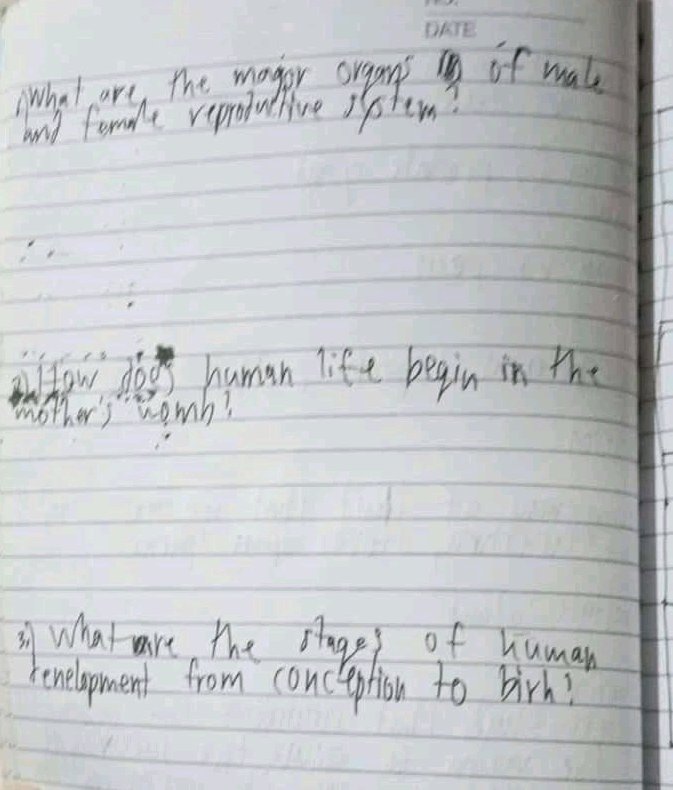 DATE
1) What are the magor organs of male
and female reproductive system?
2) How does human life begin in the
mother's womb?
3.) What are the stages of human
from conception to birh?